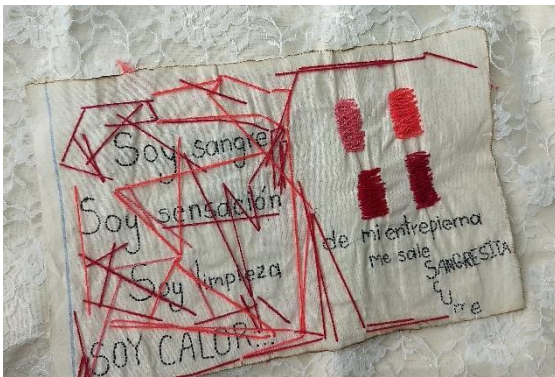 Soy sangre
Soy sensación
Soy limpieza
SOY CALOR...
de mi entrepierna
me sale
SANGRESITA